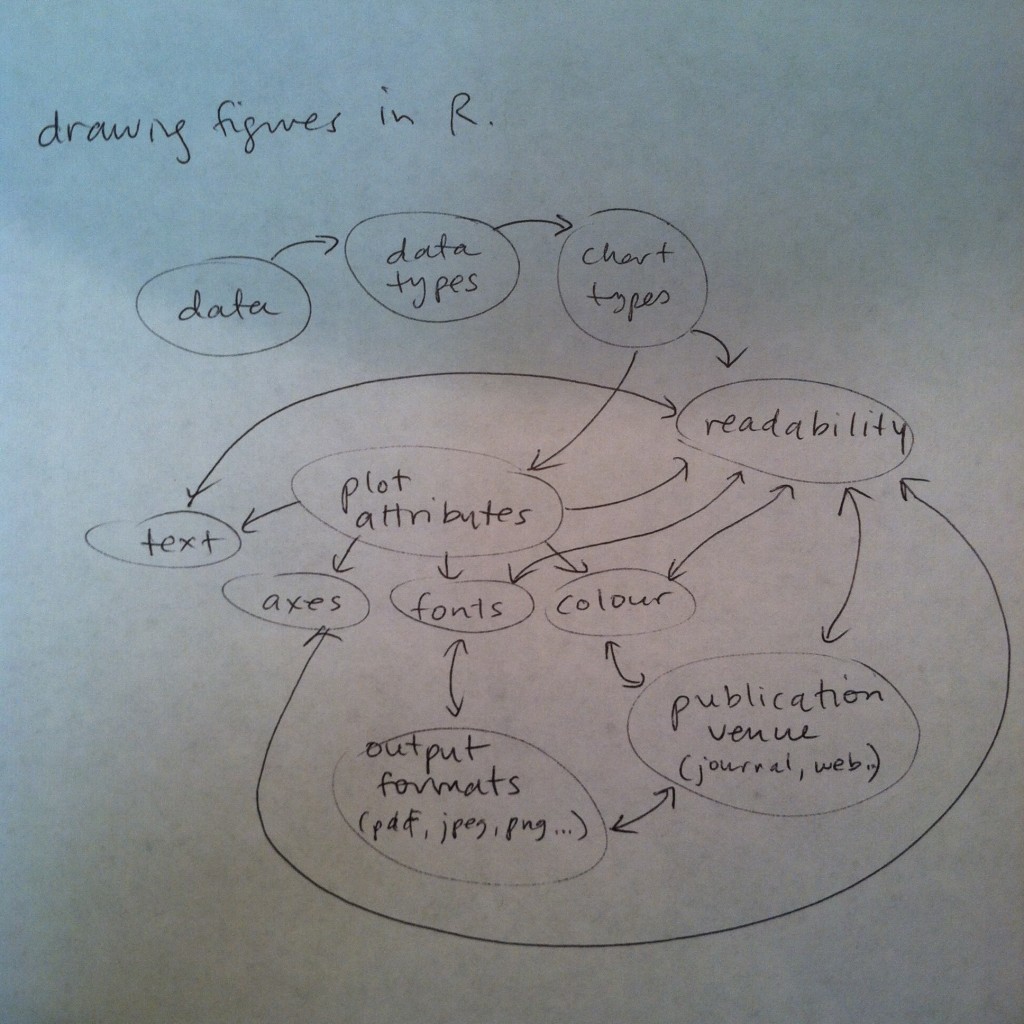 drawing figures in R.
data
data
types
chart
types
readability
plot
attributes
text
axes
fonts
colour
publication
venue
(journal, web..)
output
formats
(pdf, jpeg, png...)